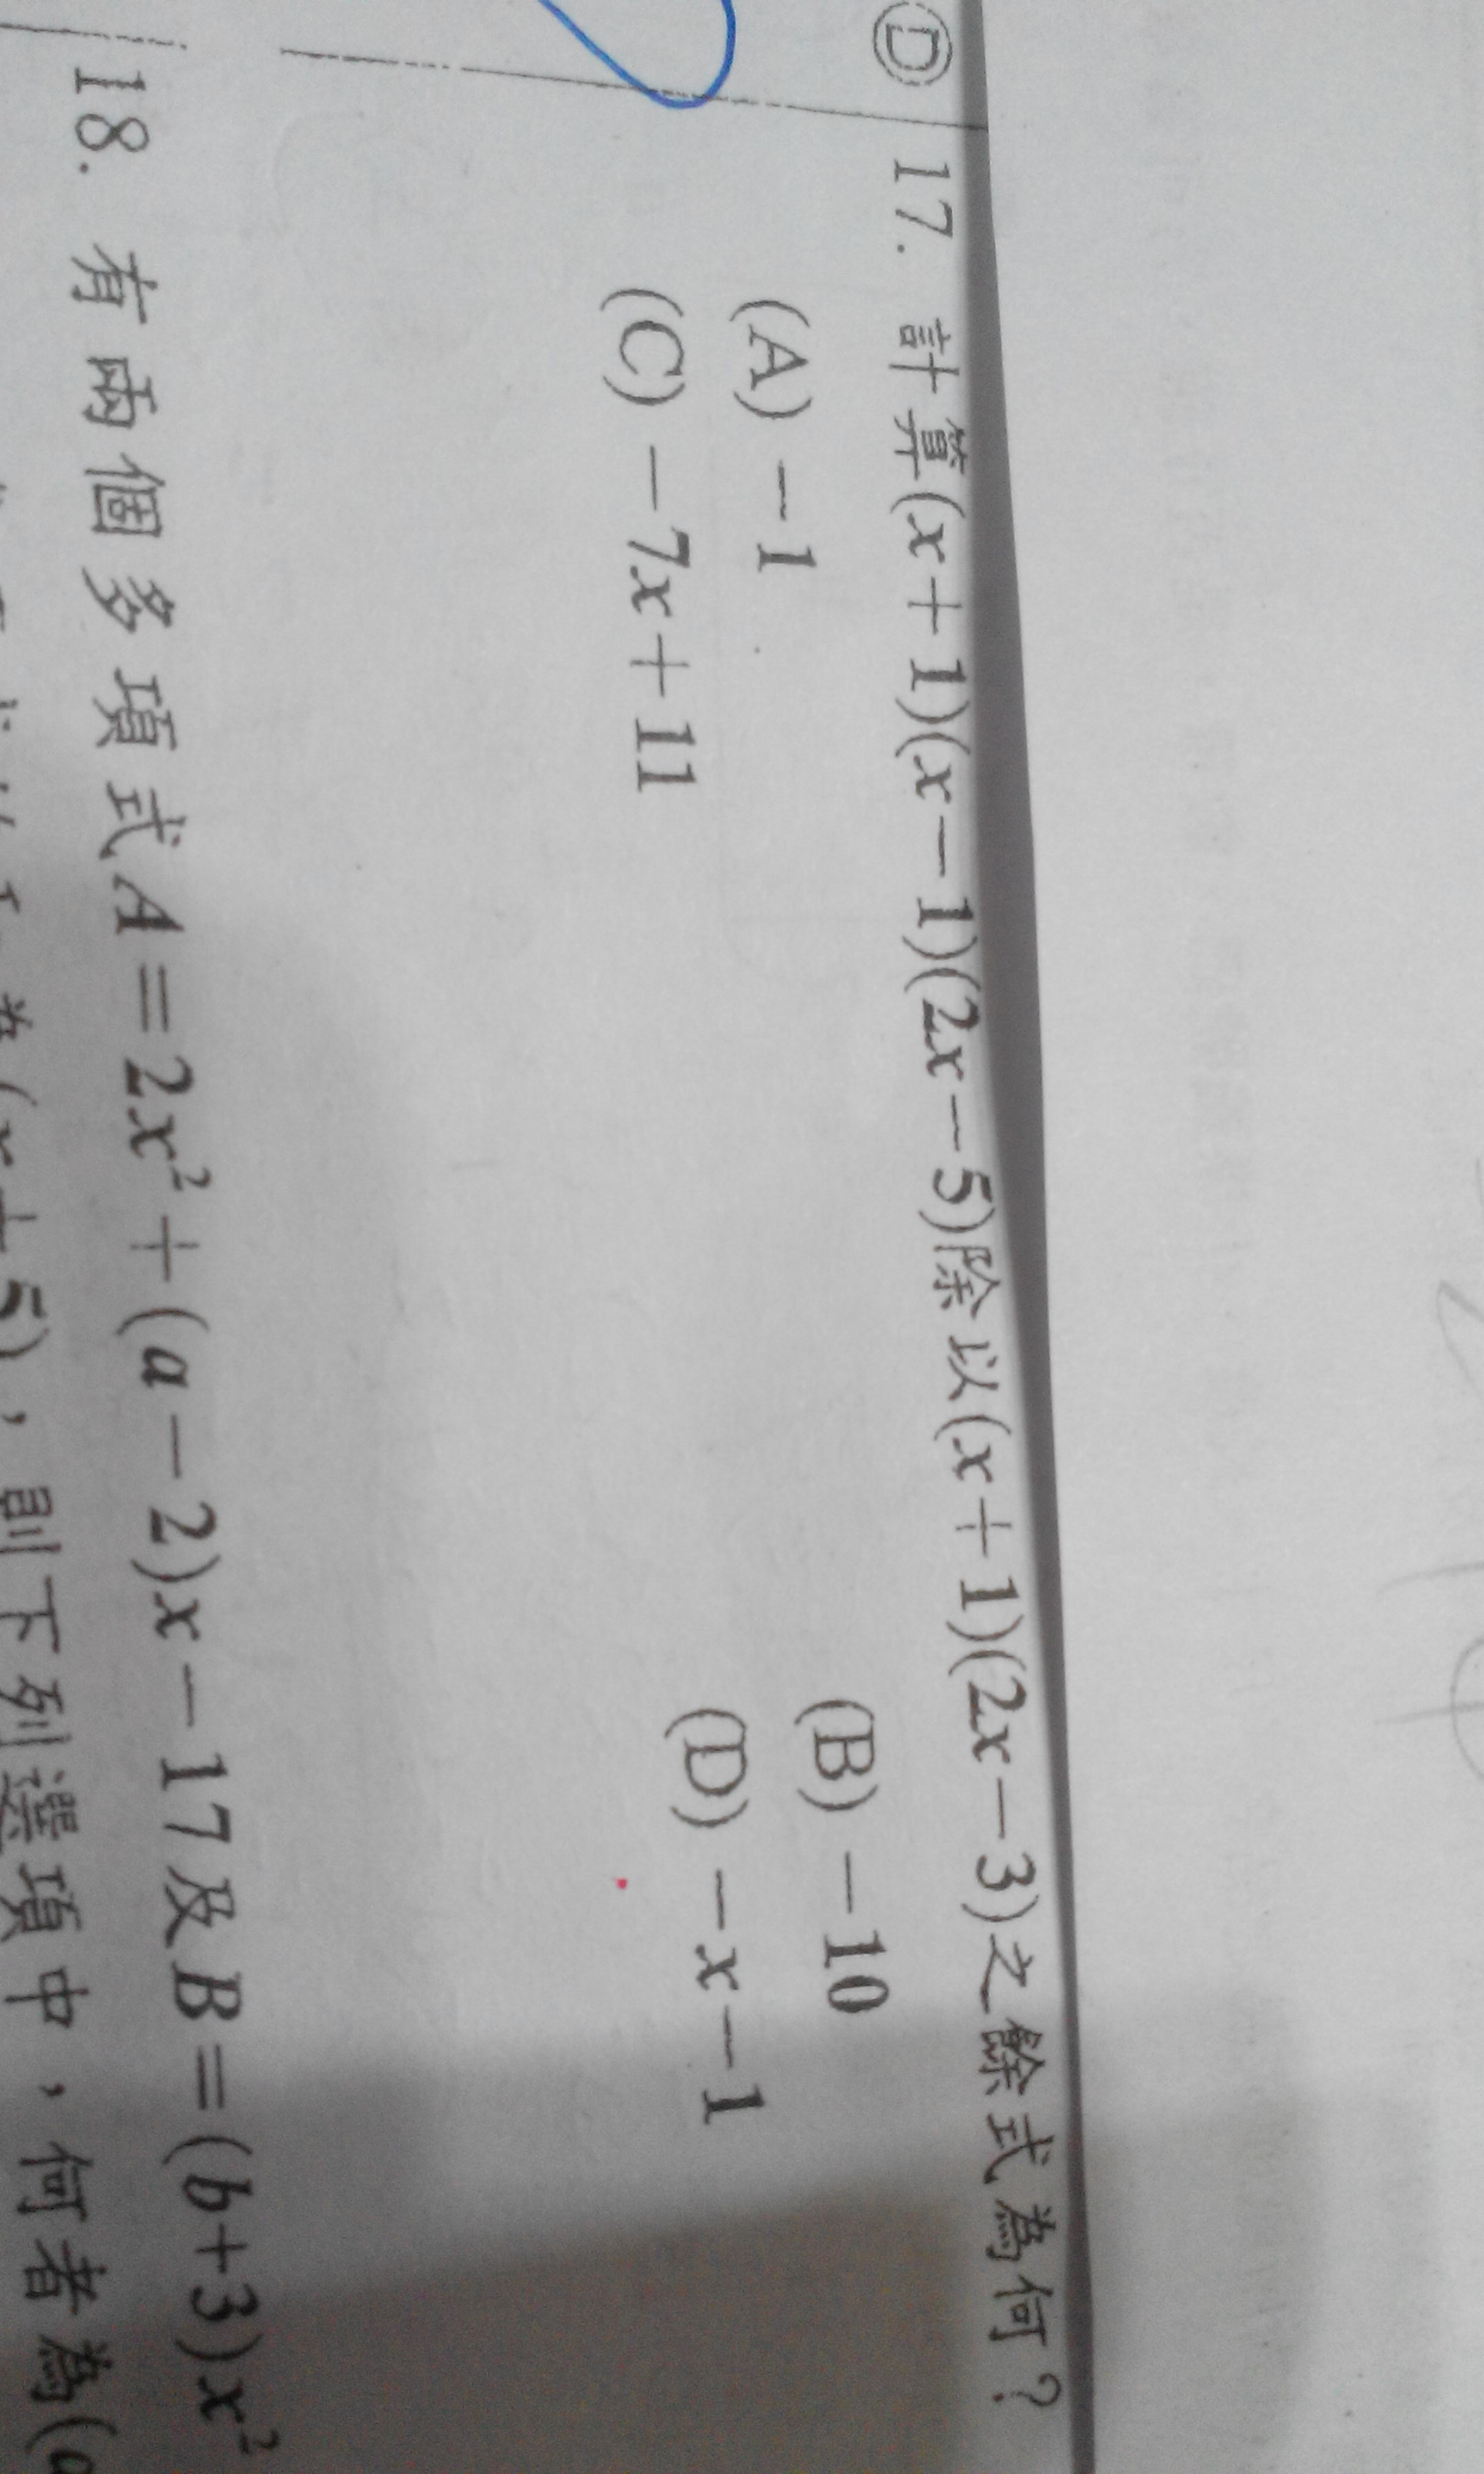 Ⓓ 17. 計算(x+1)(x-1)(2x-5)除以(x+1)(2x-3)之餘式為何？
(A) -1 (B) -10
(C) -7x+11 (D) -x-1
18. 有兩個多項式A=2x²+(a-2)x-17及B=(b+3)x²
5)，則下列選項中，何者為(a